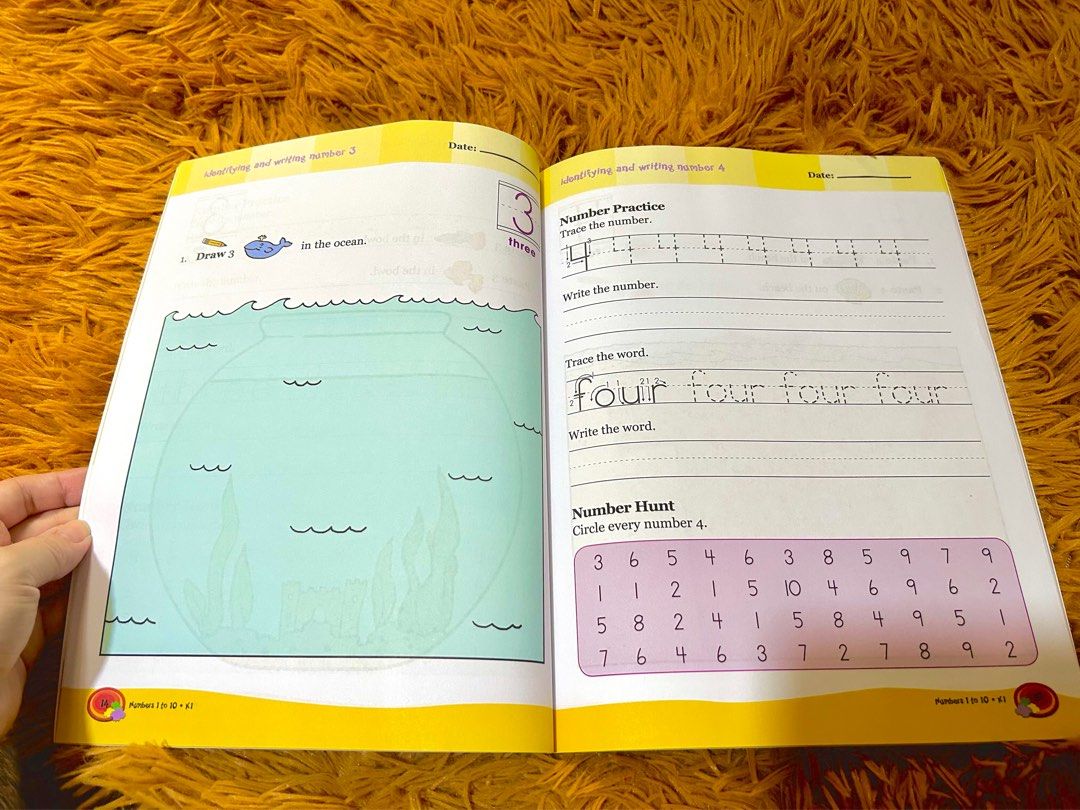 Identifying and writing number 3
Date:
3
three
1. Draw 3 in the ocean.
14
Numbers 1 to 10 • K1
Identifying and writing number 4
Date:
Number Practice
Trace the number.
4 4 4 4 4 4 4 4
Write the number.
Trace the word.
four four four four
Write the word.
Number Hunt
Circle every number 4.
3 6 5 4 6 3 8 5 9 7 9
1 1 2 1 5 10 4 6 9 6 2
5 8 2 4 1 5 8 4 9 5 1
7 6 4 6 3 7 2 7 8 9 2
Numbers 1 to 10 • K1